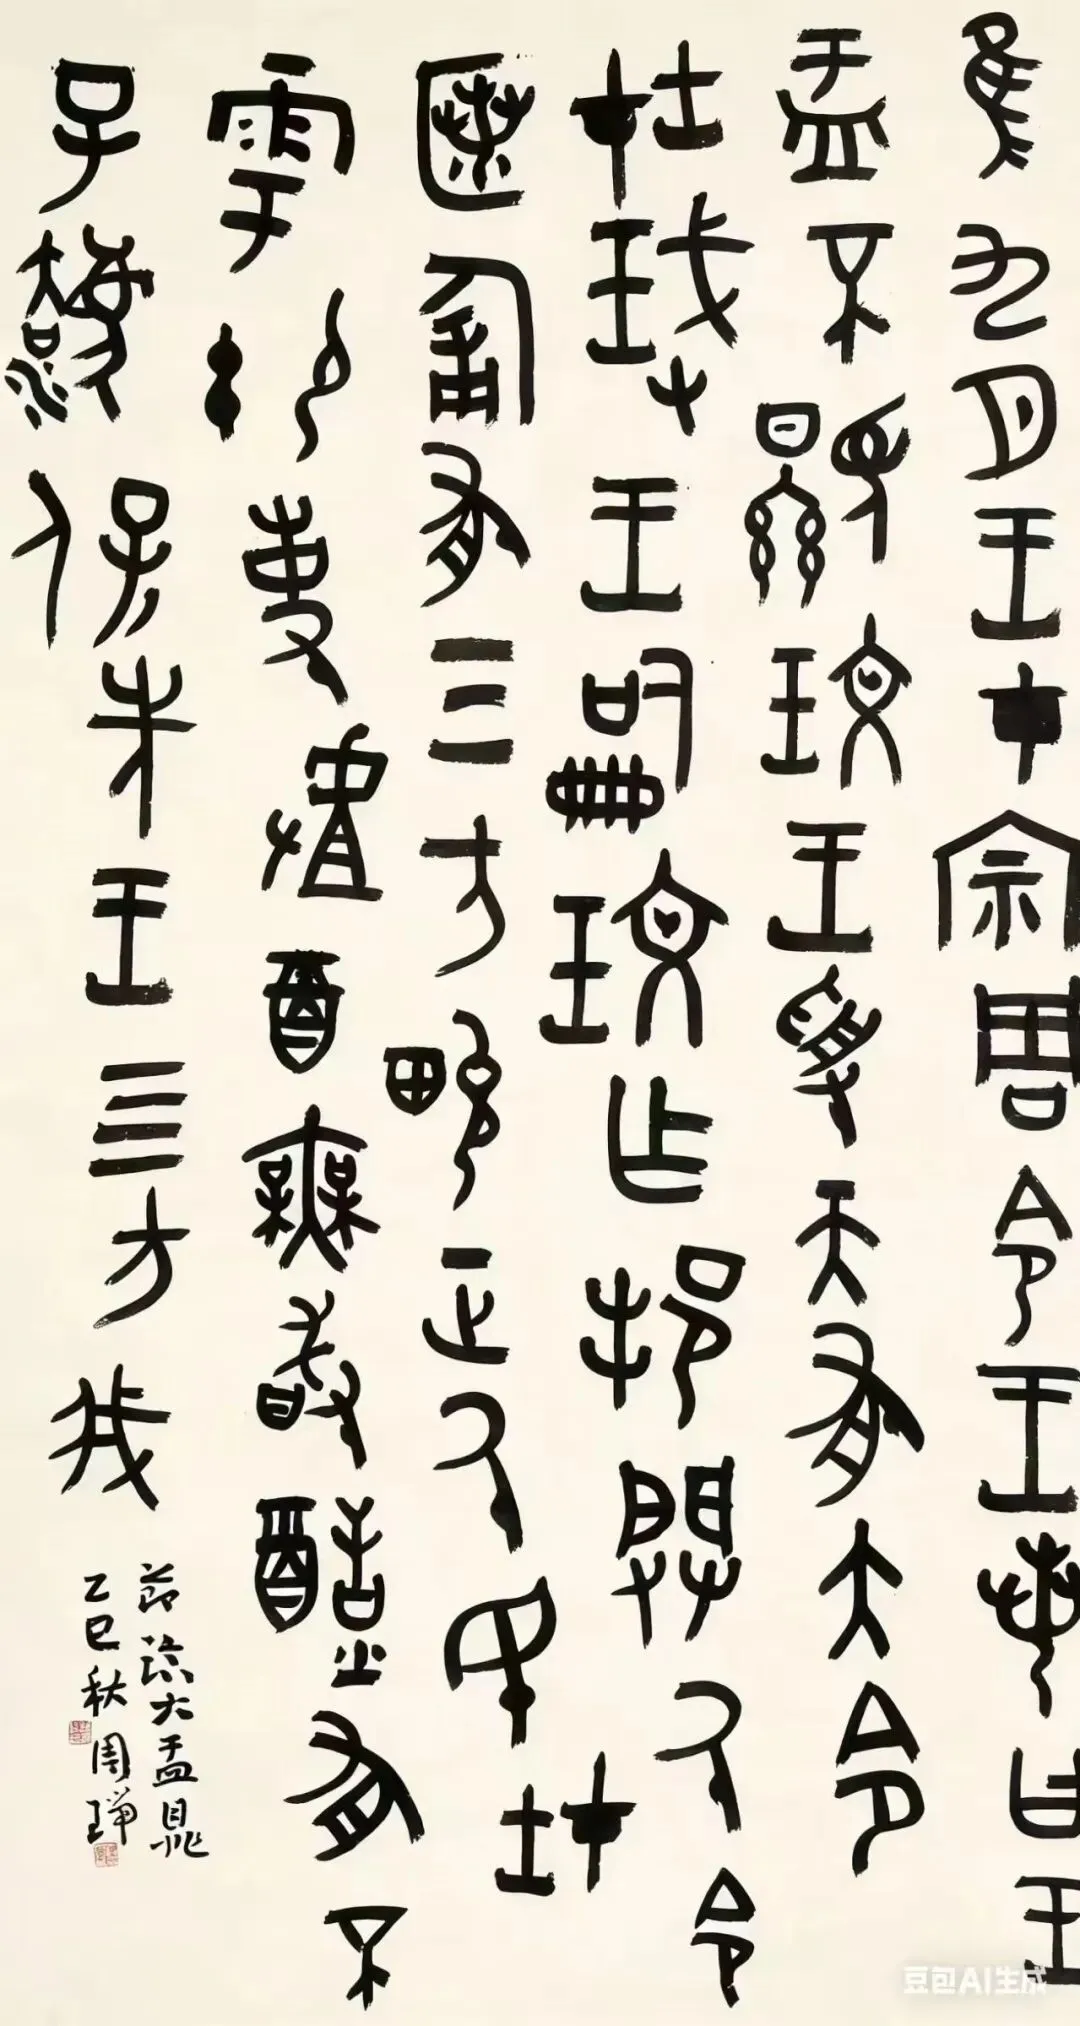 隹九月王才宗周令王若曰王
盂不顯玟王受天有大令
在珷王嗣玟乍邦闢氒令
匿匍有三方畯正氒在
雩御事酉無敢酖有不
子灋保先王三方
節臨大盂鼎
乙巳秋周琤
豆包AI生成